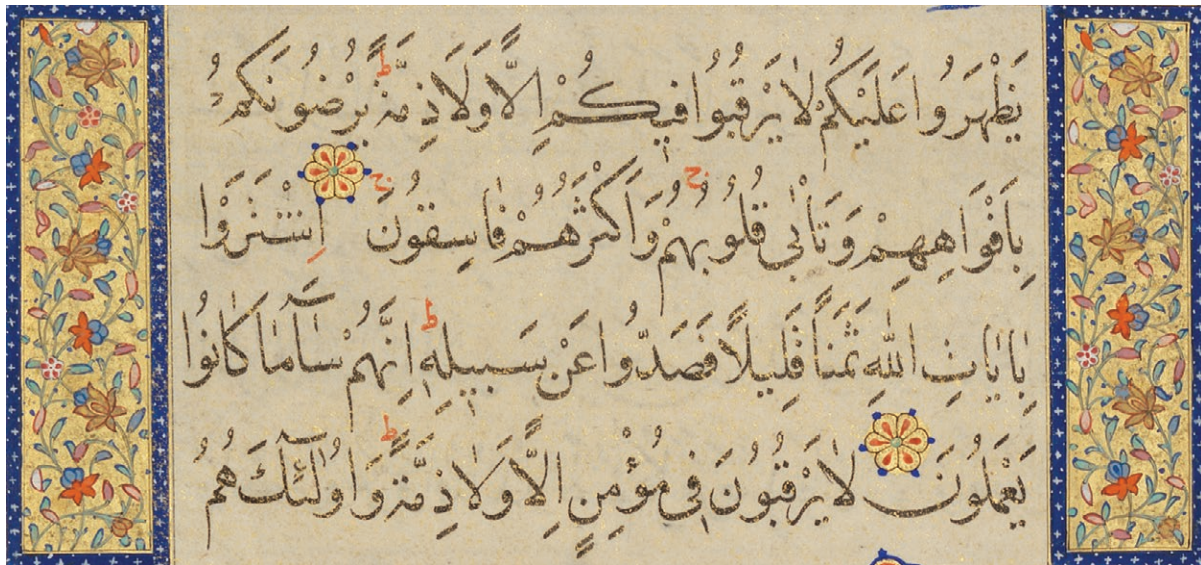 يَظْهَرُوا عَلَيْكُمْ لَا يَرْقُبُوا فِيكُمْ اِلًّا وَلَا ذِمَّةً ط يُرْضُونَكُمْ
بِاَفْوَاهِهِمْ وَتَأْبٰى قُلُوبُهُمْ ج وَاَكْثَرُهُمْ فَاسِقُونَ ج اِشْتَرَوْا
بِاٰيَاتِ اللّٰهِ ثَمَنًا قَلِيلًا فَصَدُّوا عَنْ سَبِيلِهِ ط اِنَّهُمْ سَٓاءَ مَا كَانُوا
يَعْمَلُونَ لَا يَرْقُبُونَ فِى مُؤْمِنٍ اِلًّا وَلَا ذِمَّةً ط وَاُولٰٓئِكَ هُمُ